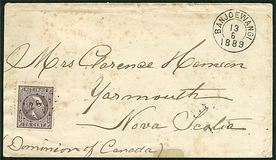 BANJOEWANGI
13
6
1889
Mrs Clarence
Yarmouth
Nova Scotia
(Dominion of Canada)